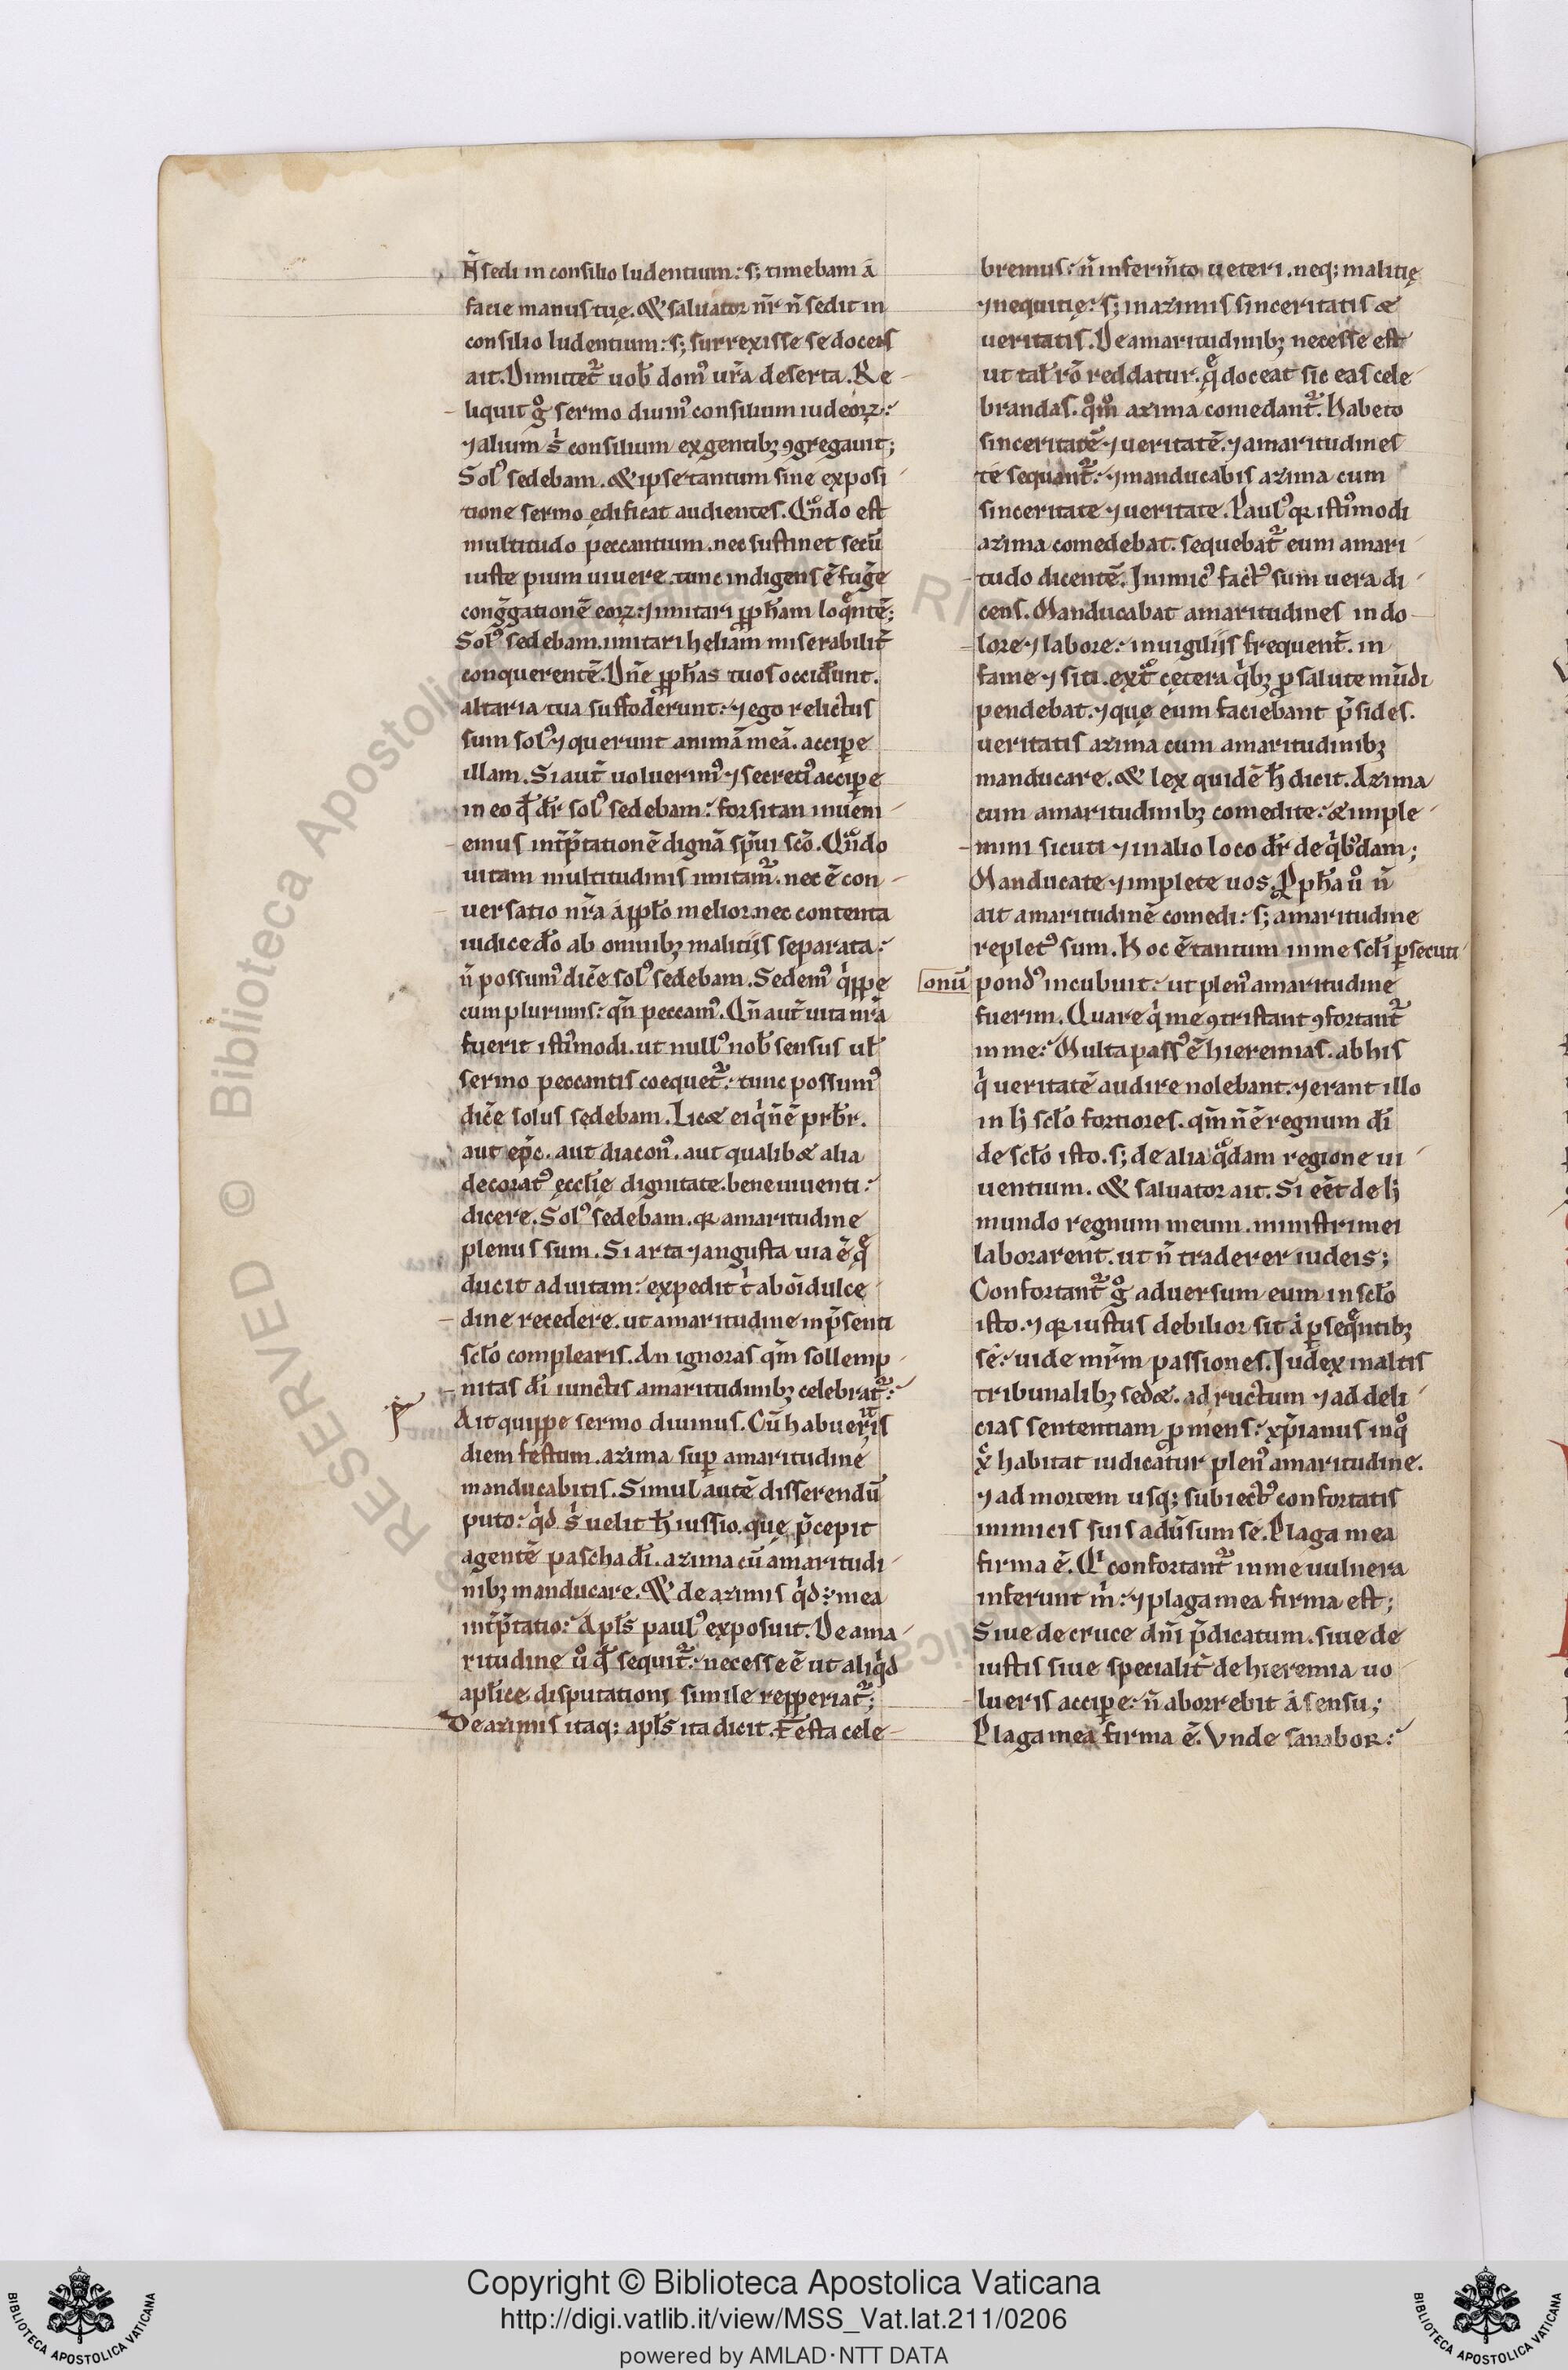 Ñ sedi in consilio ludentium: s; timebam a
facie manus tuę. & saluator nr̄ n̄ sedit in
consilio ludentium: s; surrexisse se docens
ait. Dimittet᷑ uob̄ domꝰ ur̄a deserta. Re-
liquit gͦ sermo diuinꝰ consilium iudeoꝝ:
⁊ alium sͥ consilium ex gentibꝫ ꝯgregauit;
Solꝰ sedebam. & ipse tantum sine exposi-
tione sermo ędificat audientes. Qn̄do est
multitudo peccantium. nec sustinet secū
iuste pium uiuere. tunc indigens ē fuḡe
cong̃gationē eoꝝ: ⁊ imitari ꝓph̄am loqͣntē;
Solꝰ sedebam. imitari heliam miserabilit̄
conquerentē. Dn̄e ꝓph̄as tuos occiderunt.
altaria tua suffoderunt: ⁊ ego relictus
sum solꝰ ⁊ querunt animā meā. acciꝑe
illam. Si aut̄ uoluerimꝰ ⁊ secretiꝰ acciꝑe
in eo qd̄ dr̄ solꝰ sedebam: forsitan inueni-
emus int̄p̄tationē dignā sp̄ui sc̄o. Qn̄do
uitam multitudinis imitam᷑. nec ē con-
uersatio nr̄a a ꝓpl̄o melior. nec contenta
iudice dō ab omnibꝫ malitiis separata:
n̄ possumꝰ dic̄e solꝰ sedebam. Sedemꝰ qͥꝑpe
cum plurimis: qn̄ peccamꝰ. Qn̄ aut̄ uita nr̄a
fuerit istiꝰmodi. ut nullꝰ nob̄ sensus ul̄
sermo peccantis coequet᷑: tunc possumꝰ
dic̄e solus sedebam. Lic& ei qͥ n̄ ē prb̄r.
aut ep̄c. aut diaconꝰ. aut qualib& alia
decoratꝰ ęccl̄ie dignitate. bene uiuenti:
dicere. Solꝰ sedebam. qꝛ amaritudine
plenus sum. Si arta ⁊ angusta uia ē qͣ
ducit ad uitam: expedit tͥ ab oī dulce-
dine recedere. ut amaritudine in p̄senti
scl̄o complearis. An ignoras qm̄ sollemp-
nitas dī iunctis amaritudinibꝫ celebrat᷑:
Ait quippe sermo diuinus. Cū habueritis
diem festum. azima suꝑ amaritudine
manducabitis. Simul autē disserendū
puto: qͥd sͥ uelit h̄ iussio. que p̄cepit
agentē pascha dī. azima cū amaritudi-
nibꝫ manducare. & de azimis qͥd: mea
int̄p̄tatio: Apl̄s paulꝰ exposuit. De ama-
ritudine uͦ qd̄ sequit᷑: necesse ē ut aliqͥd
apl̄ice disputationi simile repperiat᷑;
De azimis itaq; apl̄s ita dicit. Festa cele-
bremus: n̄ in ferm̄to ueteri. neq; malitię
⁊ nequitię: s; in azimis sinceritatis &
ueritatis. De amaritudinibꝫ necesse est
ut tal̄ rō reddatur. qͣ doceat sic eas cele-
brandas. qͦm azima comedant᷑. Habeto
sinceritatē ⁊ ueritatē. ⁊ amaritudines
te sequant᷑: ⁊ manducabis azima cum
sinceritate ⁊ ueritate. Paulꝰ qꝛ istiꝰmodi
azima comedebat. sequebat᷑ eum amari-
tudo dicentē. Inimicꝰ factꝰ sum uera di-
cens. Manducabat amaritudines in do-
lore ⁊ labore: in uigiliis frequent̄. in
fame ⁊ siti. extͣ cętera qͥbꝫ ꝓ salute mūdi
pendebat. ⁊ que eum faciebant p̄sides.
ueritatis azima cum amaritudinibꝫ
manducare. & lex quidē h̄ dicit. Azima
cum amaritudinibꝫ comedite: & imple-
mini sicuti ⁊ in alio loco dr̄ de qͥbꝰdam;
Manducate ⁊ implete uos. Ꝓph̄a uͦ n̄
ait amaritudinē comedi: s; amaritudine
repletꝰ sum. Hoc ē tantum in me scl̄i ꝑsecuti-
onū pondꝰ incubuit: ut plenꝰ amaritudine
fuerim. Quare qͥ me ꝯtristant ꝯfortant᷑
in me: Multa passꝰ ē hieremias. ab his
qͥ ueritatē audire nolebant. ⁊ erant illo
in h̄ scl̄o fortiores. qm̄ n̄ ē regnum dī
de scl̄o isto. s; de alia qͣdam regione ui-
uentium. & saluator ait. Si eēt de h̄
mundo regnum meum. ministri mei
laborarent. ut n̄ traderer iudeis;
Confortant᷑ gͦ aduersum eum in scl̄o
isto. ⁊ qꝛ iustus debilior sit a ꝑseqͣntibꝫ
sē: uide mr̄m passiones. Iudex in altis
tribunalibꝫ sed&. ad ructum ⁊ ad deli-
cias sententiam ꝓmens: xp̄ianus in qͦ
x̄ habitat iudicatur plenꝰ amaritudine.
⁊ ad mortem usq; subiectꝰ confortatis
inimicis suis adūsum se. Plaga mea
firma ē. Qͥ confortant᷑ in me uulnera
inferunt mͥ: ⁊ plaga mea firma est;
Siue de cruce dn̄i p̄dicatum. siue de
iustis siue specialit̄ de hieremia uo-
lueris acciꝑe: n̄ aborrebit a sensu;
Plaga mea firma ē. Vnde sanabor:
Copyright © Biblioteca Apostolica Vaticana
http://digi.vatlib.it/view/MSS_Vat.lat.211/0206
powered by AMLAD·NTT DATA